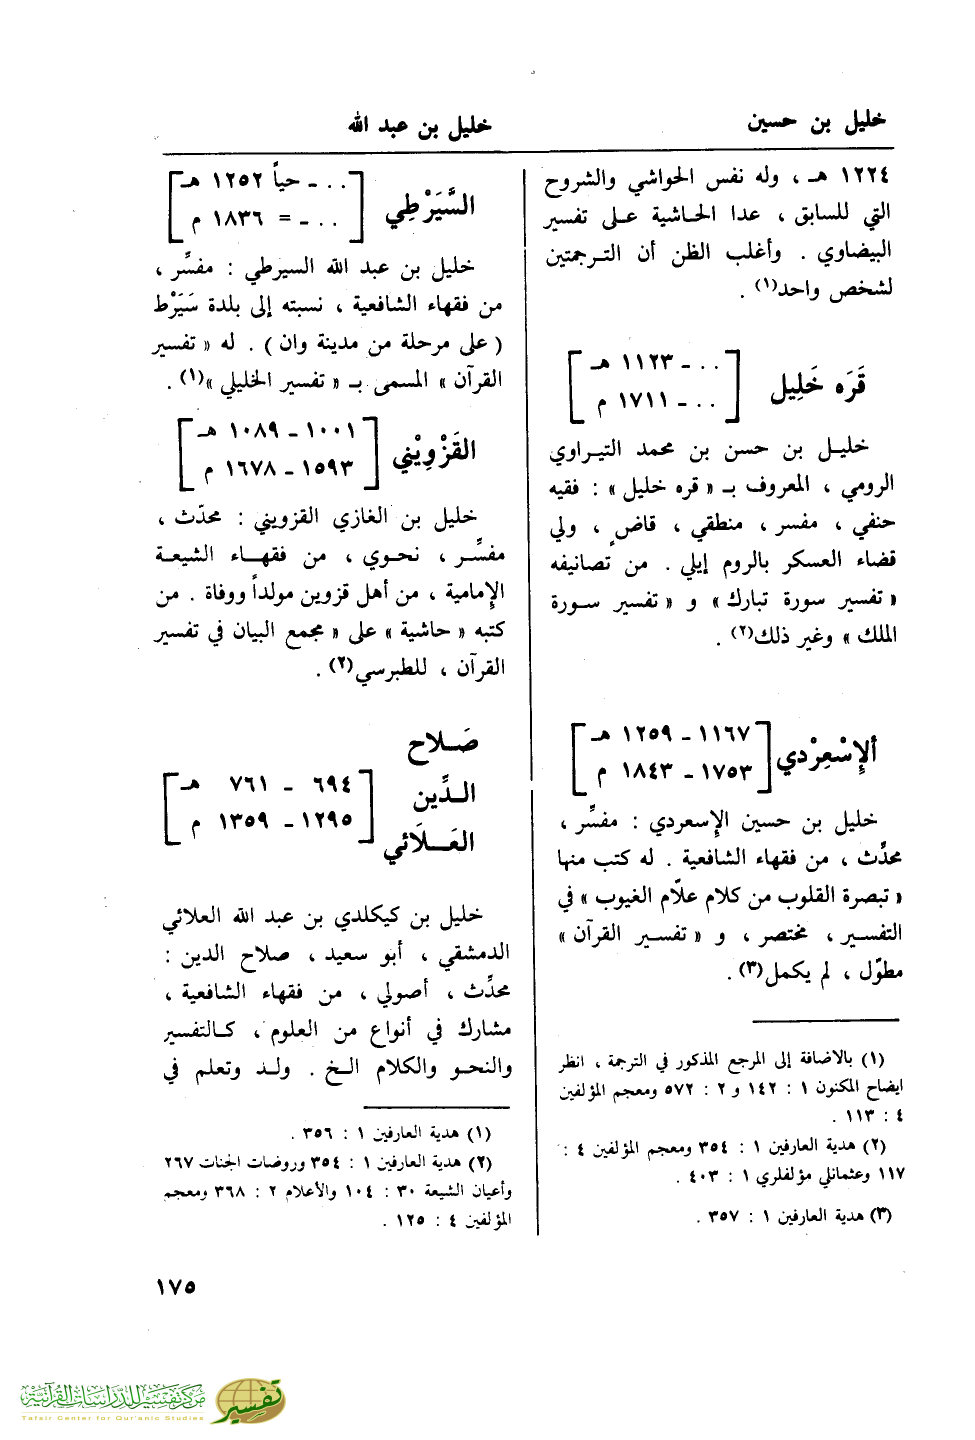 خليل بن حسين
خليل بن عبد الله
١٢٢٤ هـ ، وله نفس الحواشي والشروح
التي للسابق ، عدا الحاشية على تفسير
البيضاوي . وأغلب الظن أن الترجمتين
لشخص واحد(١) .
قَرَه خَلِيل
[ . . ـ ١١٢٣ هـ
. . ـ ١٧١١ م ]
خليل بن حسن بن محمد التيراوي
الرومي ، المعروف بـ « قره خليل » : فقيه
حنفي ، مفسر ، منطقي ، قاضٍ ، ولي
قضاء العسكر بالروم إيلي . من تصانيفه
« تفسير سورة تبارك » و « تفسير سورة
الملك » وغير ذلك(٢) .
الإِسْعِرْدي
[ ١١٦٧ ـ ١٢٥٩ هـ
١٧٥٣ ـ ١٨٤٣ م ]
خليل بن حسين الإسعردي : مفسِّر ،
محدِّث ، من فقهاء الشافعية . له كتب منها
« تبصرة القلوب من كلام علاّم الغيوب » في
التفسير ، مختصر ، و « تفسير القرآن »
مطوّل ، لم يكمل(٣) .
(١) بالاضافة إلى المرجع المذكور في الترجمة ، انظر
ايضاح المكنون ١ : ١٤٢ و ٢ : ٥٧٢ ومعجم المؤلفين
٤ : ١١٣ .
(٢) هدية العارفين ١ : ٣٥٤ ومعجم المؤلفين ٤ :
١١٧ وعثمانلي مؤلفلري ١ : ٤٠٣ .
(٣) هدية العارفين ١ : ٣٥٧ .
السَّيَرْطِي
[ . . ـ حياً ١٢٥٢ هـ
. . ـ = ١٨٣٦ م ]
خليل بن عبد الله السيرطي : مفسِّر ،
من فقهاء الشافعية ، نسبته إلى بلدة سَيَرْط
( على مرحلة من مدينة وان ) . له « تفسير
القرآن » المسمى بـ « تفسير الخليلي »(١) .
القَزْوِيْني
[ ١٠٠١ ـ ١٠٨٩ هـ
١٥٩٣ ـ ١٦٧٨ م ]
خليل بن الغازي القزويني : محدّث ،
مفسِّر ، نحوي ، من فقهاء الشيعة
الإمامية ، من أهل قزوين مولداً ووفاة . من
كتبه « حاشية » على « مجمع البيان في تفسير
القرآن ، للطبرسي(٢) .
صَلاح
الدِّين
العَلَائي
[ ٦٩٤ ـ ٧٦١ هـ
١٢٩٥ ـ ١٣٥٩ م ]
خليل بن كيكلدي بن عبد الله العلائي
الدمشقي ، أبو سعيد ، صلاح الدين :
محدِّث ، أصولي ، من فقهاء الشافعية ،
مشارك في أنواع من العلوم ، كالتفسير
والنحو والكلام الخ . ولد وتعلم في
(١) هدية العارفين ١ : ٣٥٦ .
(٢) هدية العارفين ١ : ٣٥٤ وروضات الجنات ٢٦٧
وأعيان الشيعة ٣٠ : ١٠٤ والأعلام ٢ : ٣٦٨ ومعجم
المؤلفين ٤ : ١٢٥ .
١٧٥
مركز تفسير للدراسات القرآنية
Tafsir Center for Qur'anic Studies
تفسير